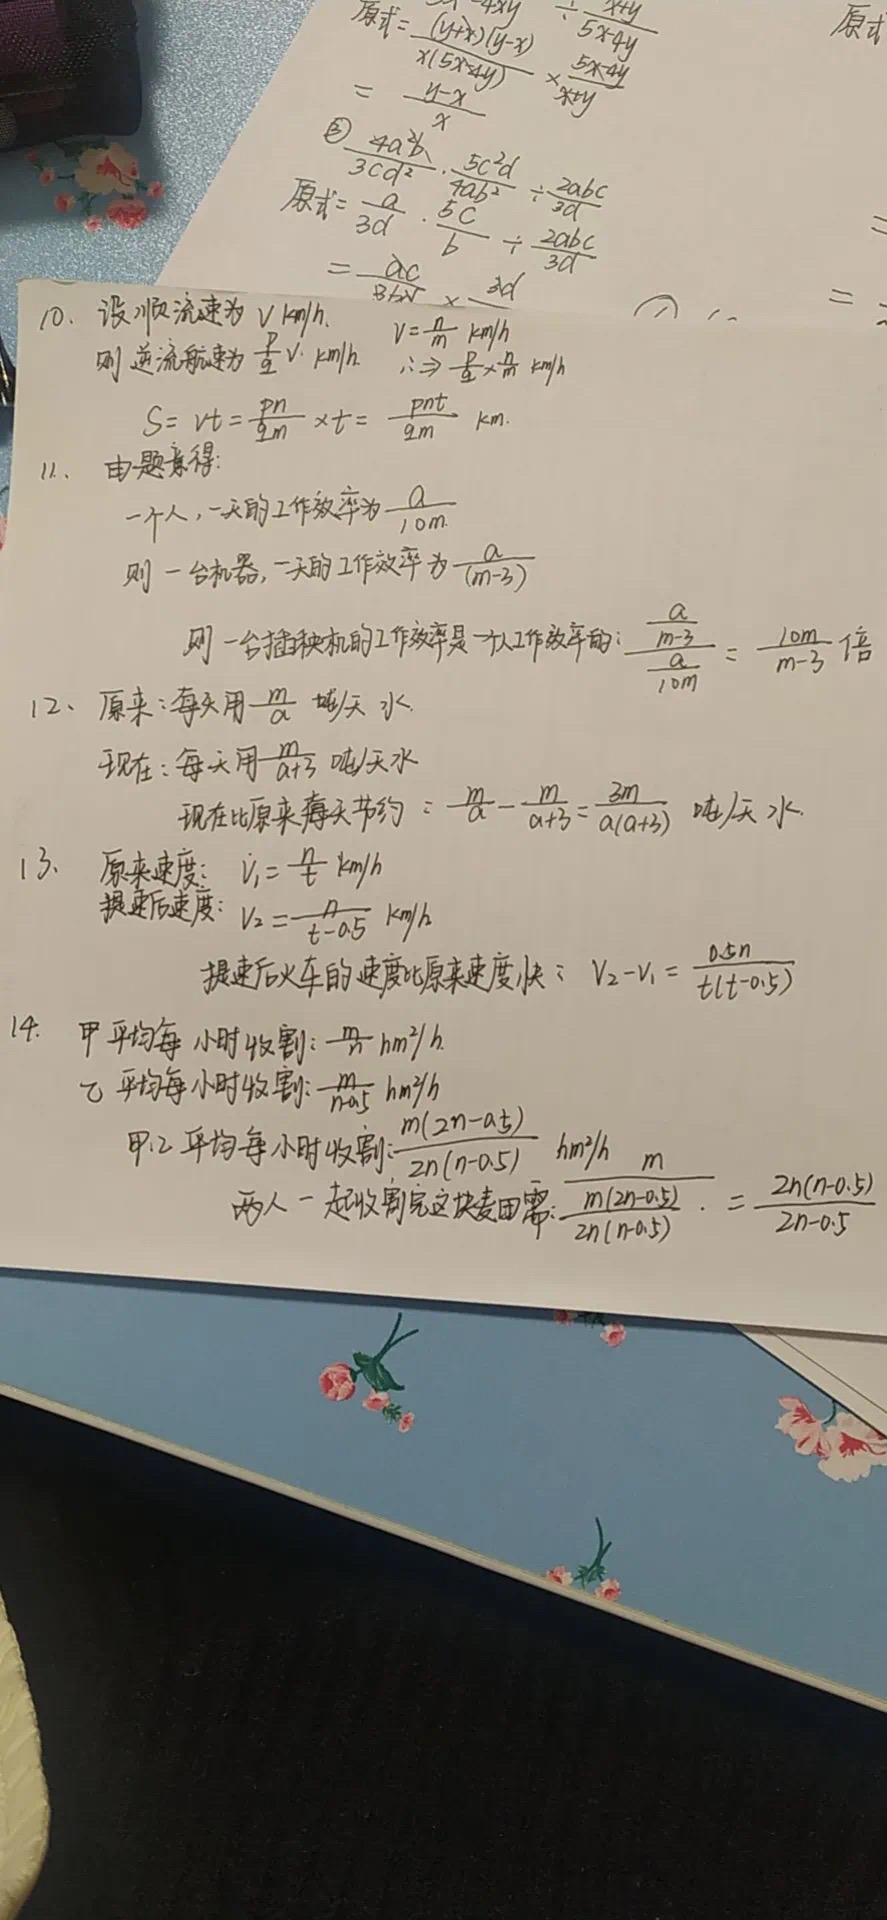 5x-4xy ÷ x+y/5x-4y
原式= (y+x)(y-x)/x(5x-4y) × 5x-4y/x+y
原式
= y-x/x
③ 4a²b/3cd² · 5c²d/4ab² ÷ 2abc/3d
原式= a/3d · 5c/b ÷ 2abc/3d
= ac
× 3d
10. 设顺流速为 v km/h. v = n/m km/h
则逆流航速为 p/q v. km/h. ∴⇒ p/q × n/m km/h
S = vt = pn/qm × t = pnt/qm km.
11. 由题意得:
一个人,一天的工作效率为 a/10m.
则一台机器,一天的工作效率为 a/(m-3)
则一台插秧机的工作效率是一个人工作效率的: a/m-3 / a/10m = 10m/m-3 倍
12、原来:每天用 m/a 吨/天 水.
现在:每天用 m/a+3 吨/天水
现在比原来每天节约: m/a - m/a+3 = 3m/a(a+3) 吨/天 水.
13. 原来速度: v₁ = n/t km/h
提速后速度: v₂ = n/t-0.5 km/h
提速后火车的速度比原来速度快: v₂-v₁ = 0.5n/t(t-0.5)
14. 甲平均每小时收割: m/n hm²/h.
乙平均每小时收割: m/n-0.5 hm²/h
甲.乙平均每小时收割: m(2n-0.5)/2n(n-0.5) hm²/h
两人一起收割完这块麦田需: m / m(2n-0.5)/2n(n-0.5) . = 2n(n-0.5)/2n-0.5